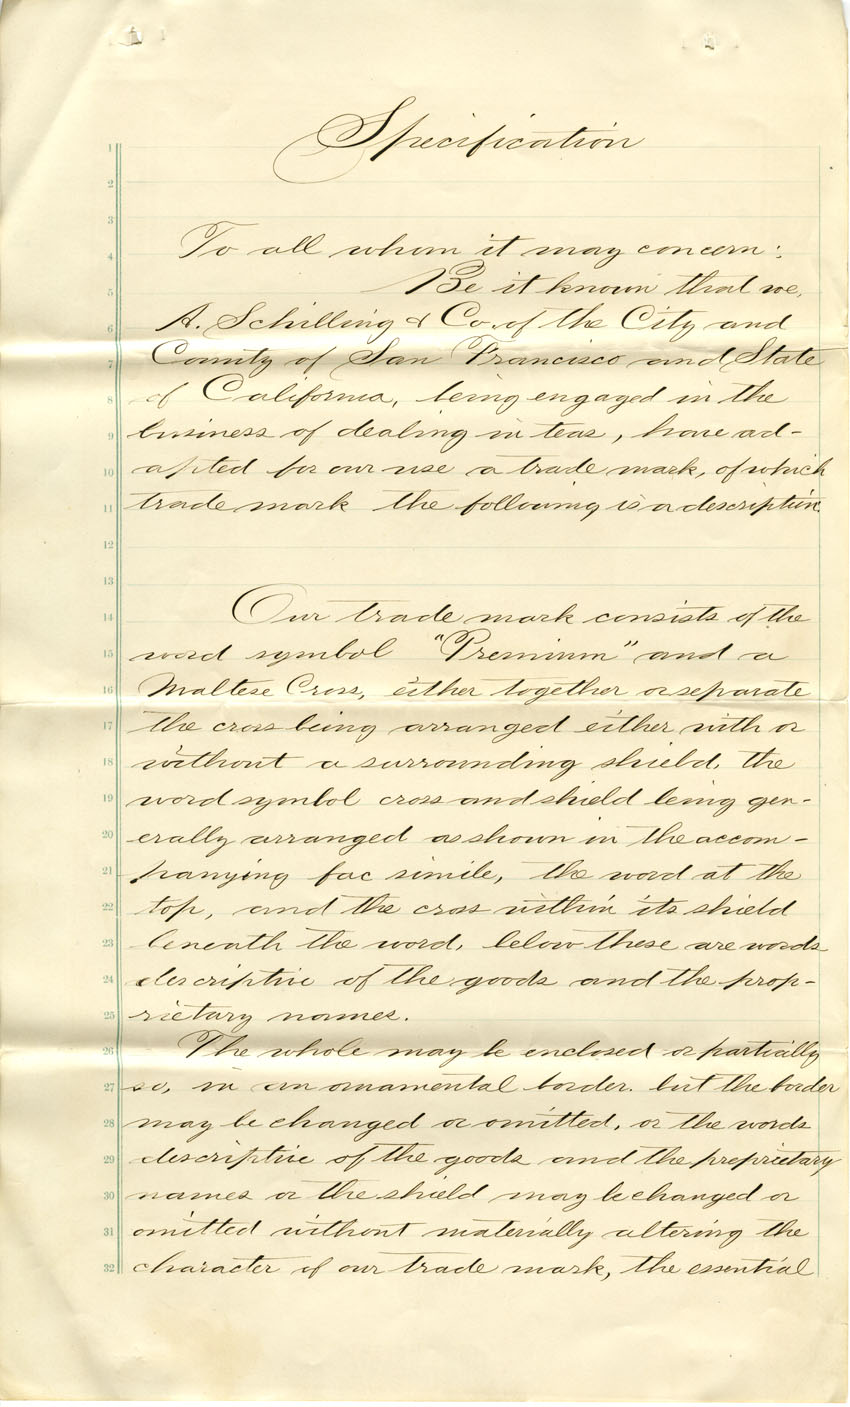 Specification
1
2
3
4 To all whom it may concern:
5 Be it known that we,
6 A. Schilling & Co. of the City and
7 County of San Francisco and State
8 of California, being engaged in the
9 business of dealing in teas, have ad-
10 opted for our use a trade mark, of which
11 trade mark the following is a description.
12
13
14 Our trade mark consists of the
15 word symbol "Premium" and a
16 Maltese Cross, either together or separate
17 the cross being arranged either with or
18 without a surrounding shield, the
19 word symbol cross and shield being gen-
20 erally arranged as shown in the accom-
21 panying fac simile, the word at the
22 top, and the cross within its shield
23 beneath the word, below these are words
24 descriptive of the goods and the prop-
25 rietary names.
26 The whole may be enclosed or partially
27 so, in an ornamental border. but the border
28 may be changed or omitted, or the words
29 descriptive of the goods and the proprietary
30 names or the shield may be changed or
31 omitted without materially altering the
32 character of our trade mark, the essential